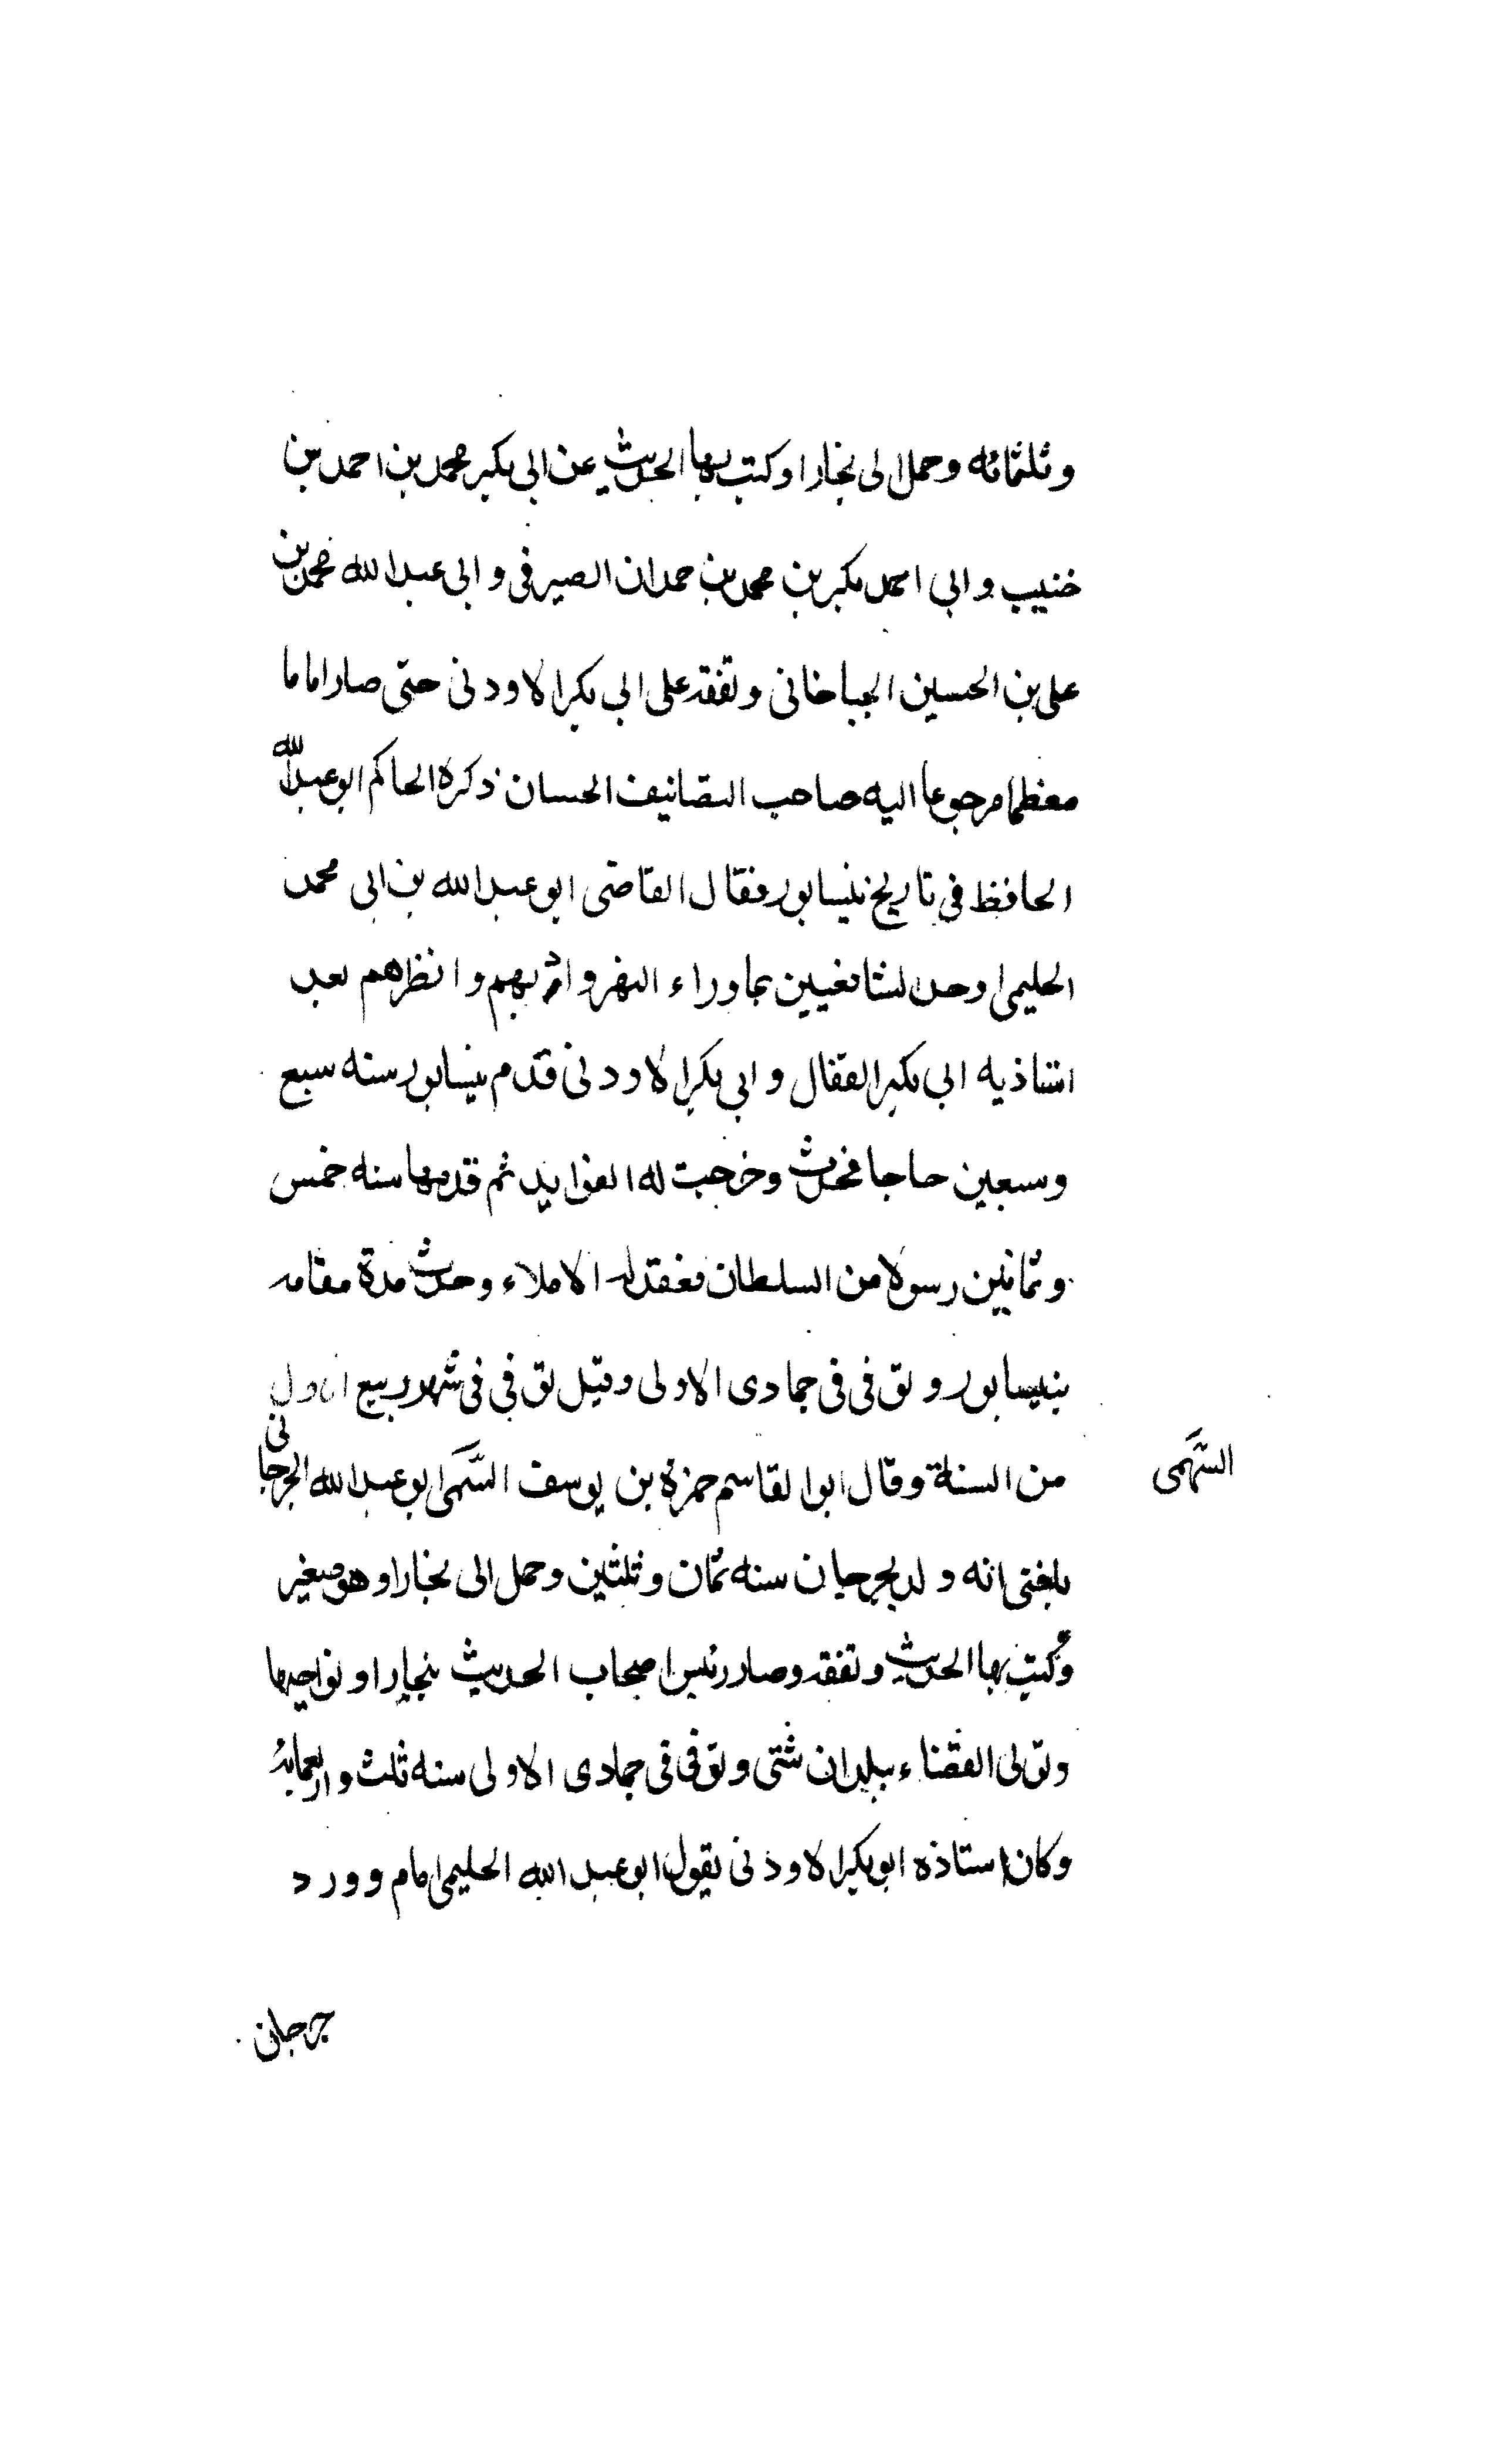 وثلثمائه وحمل الى بخارا وكتب بها الحديث عن ابى بكر محمد بن احمد بن
خنيب وابى احمد بكر بن محمد بن حمدان الصيرفى وابى عبد الله محمد بن
على بن الحسين الجباخانى وتفقه على ابى بكر الاودنى حتى صار اماما
معظما مرجوعا اليه صاحب التصانيف الحسان ذكره الحاكم ابو عبد الله
الحافظ فى تاريخ نيسابور فقال القاضى ابو عبد الله بن ابى محمد
الحليمى اوحد الشافعيين بما وراء النهر وادبهم وانظرهم بعد
استاذيه ابى بكر القفال وابى بكر الاودنى قدم نيسابور سنه سبع
وسبعين حاجا فحدث وخرجت له الفوايد ثم قدمها سنه خمس
وثمانين رسولا من السلطان فعقد له الاملاء وحدث مدة مقامه
بنيسابور وتوفى فى جمادى الاولى وقيل توفى فى شهر ربيع الاول
من السنة وقال ابو القاسم حمزة بن يوسف السَّهمى ابو عبد الله الجرجانى
السَّهمى
بلغنى انه ولد بجرجان سنه ثمان وثلثين وحمل الى بخارا وهو صغير
وكتب بها الحديث وتفقه وصار رئيس اصحاب الحديث ببخارا ونواحيها
وتولى القضاء ببلدان شتى وتوفى فى جمادى الاولى سنه ثلث واربعمايه
وكان استاذه ابو بكر الاودنى يقول ابو عبد الله الحليمى امام وورد
جرجان